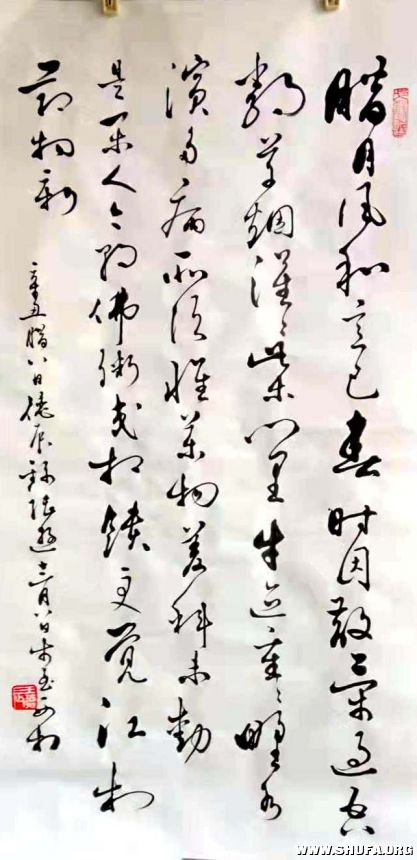 腊月风和意已春时因散策过吾
邻草烟漠々柴门里牛迹重々野水
滨多病所须惟药物差科未动
是闲人今朝佛粥交相馈更觉江村
节物新
辛丑腊八日辰录陆游十二月八日步至西村
WWW.SHUFA.ORG